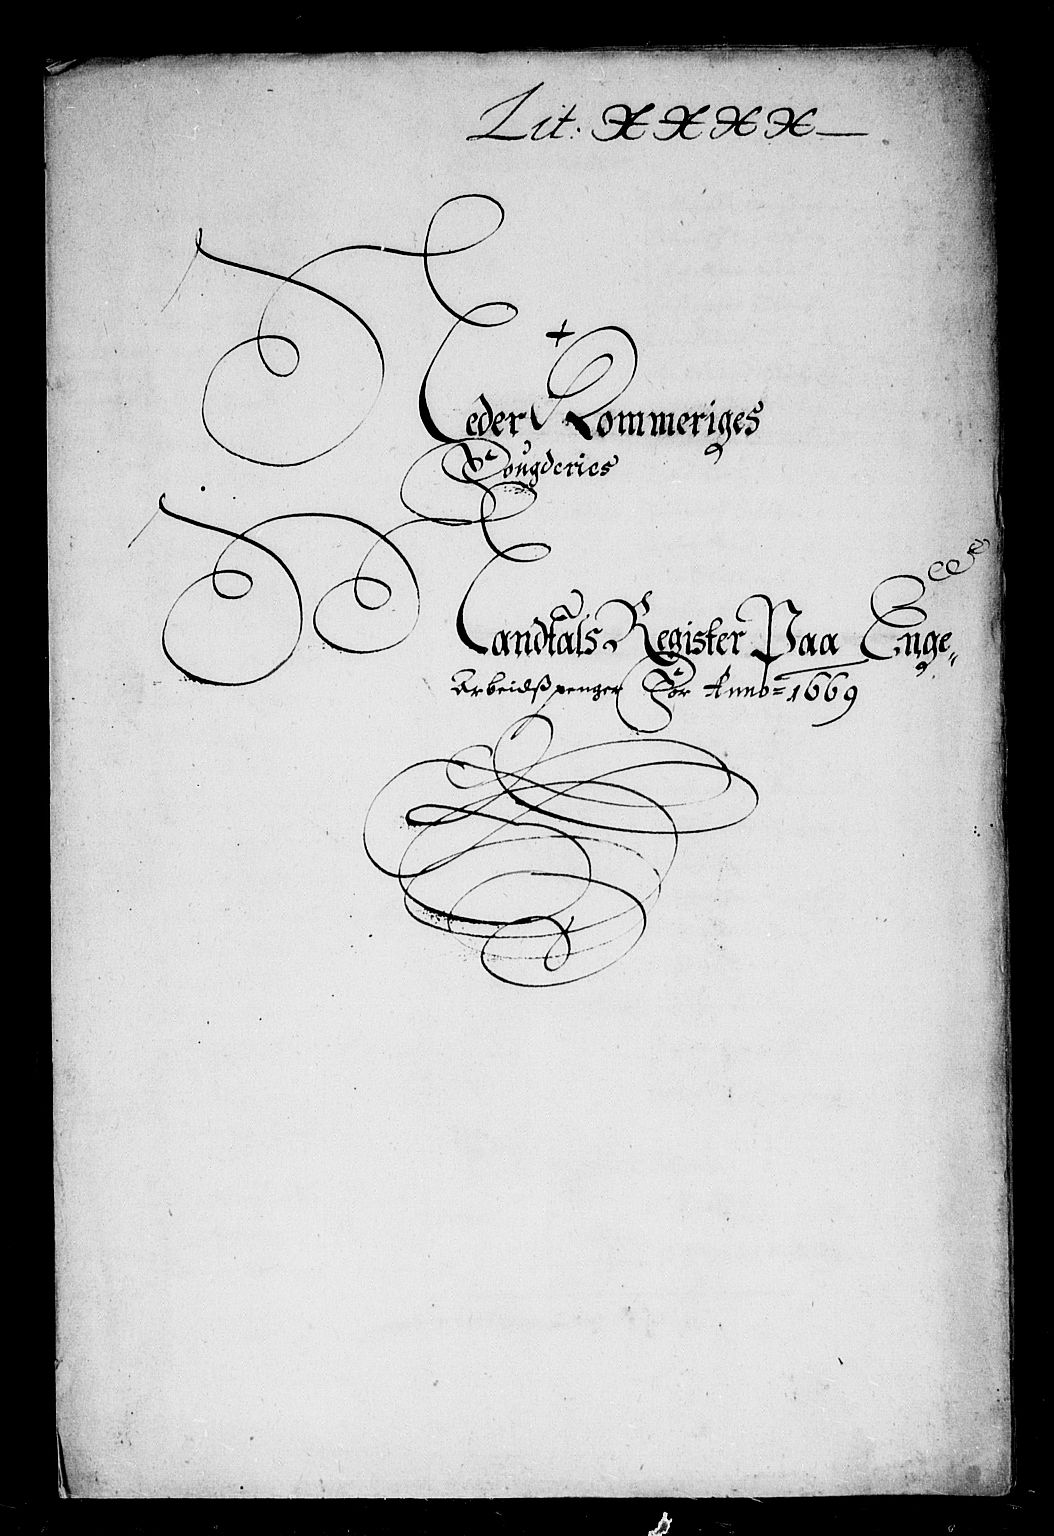 Lit: XXXX
Neder Rommeriges
Fougderies
Mandtals Register Paa Enge„
Arbeidsspenger For Anno= 1669